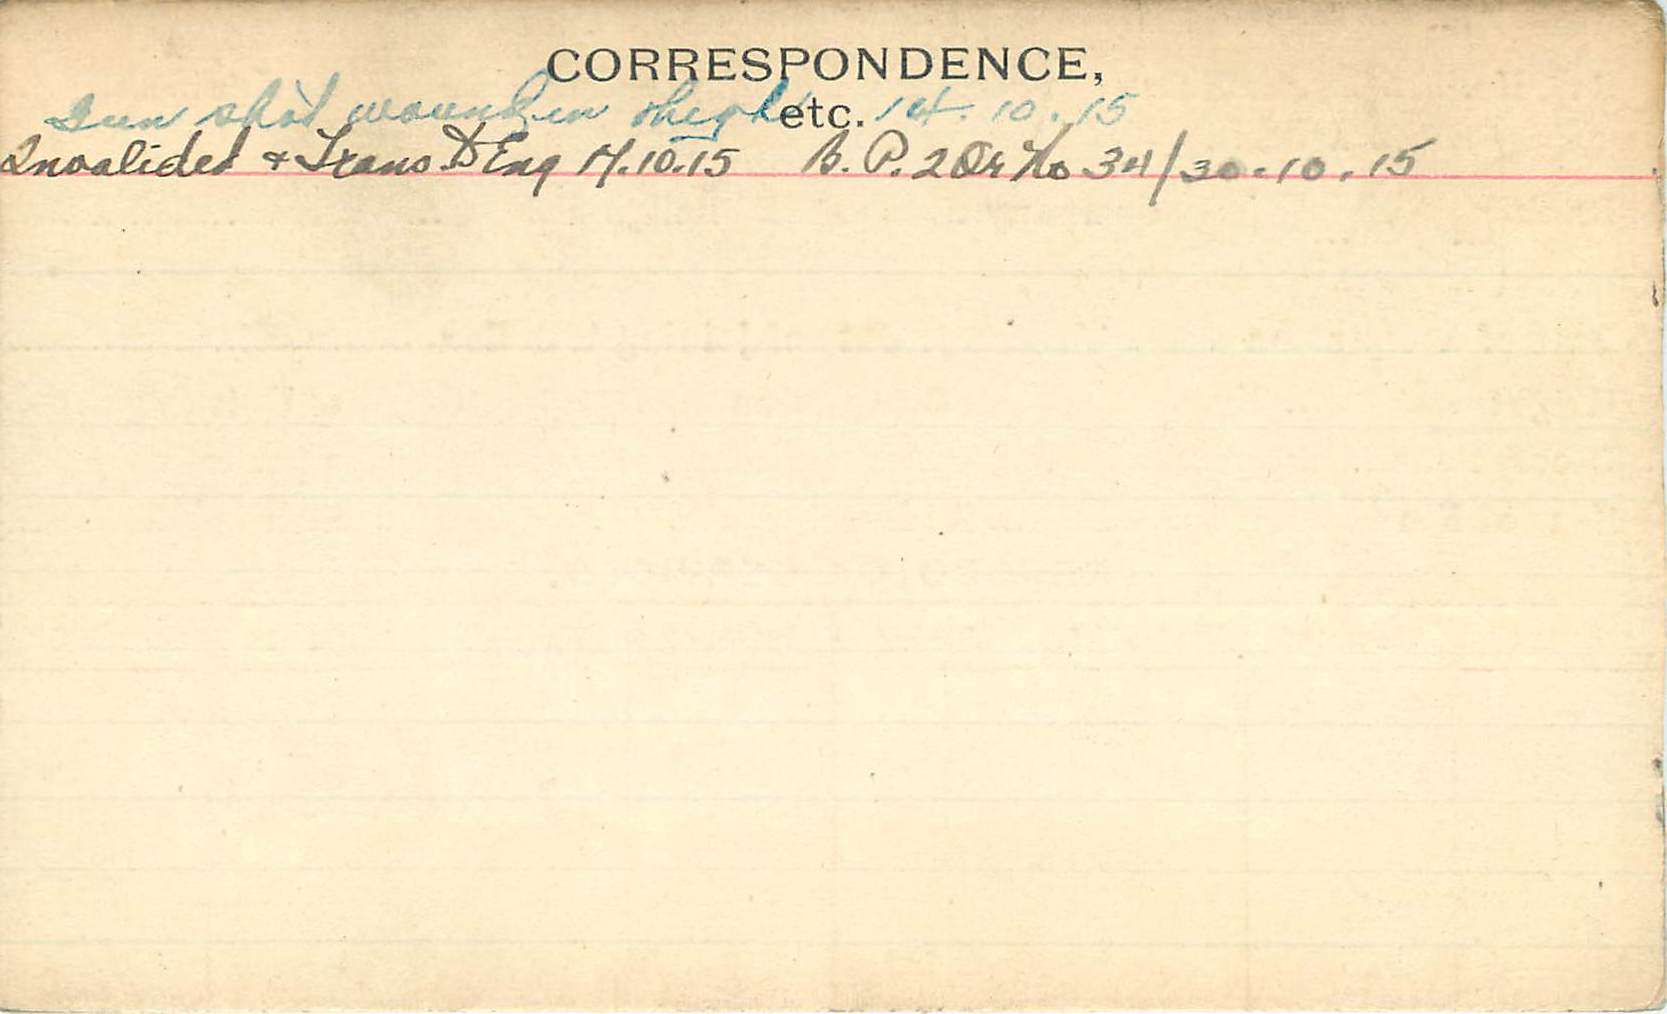 CORRESPONDENCE,
etc.
Gun shot wound in thigh 14.10.15
Invalided & Trans to Eng 17.10.15 B. P. 2 Or No 34/30.10.15